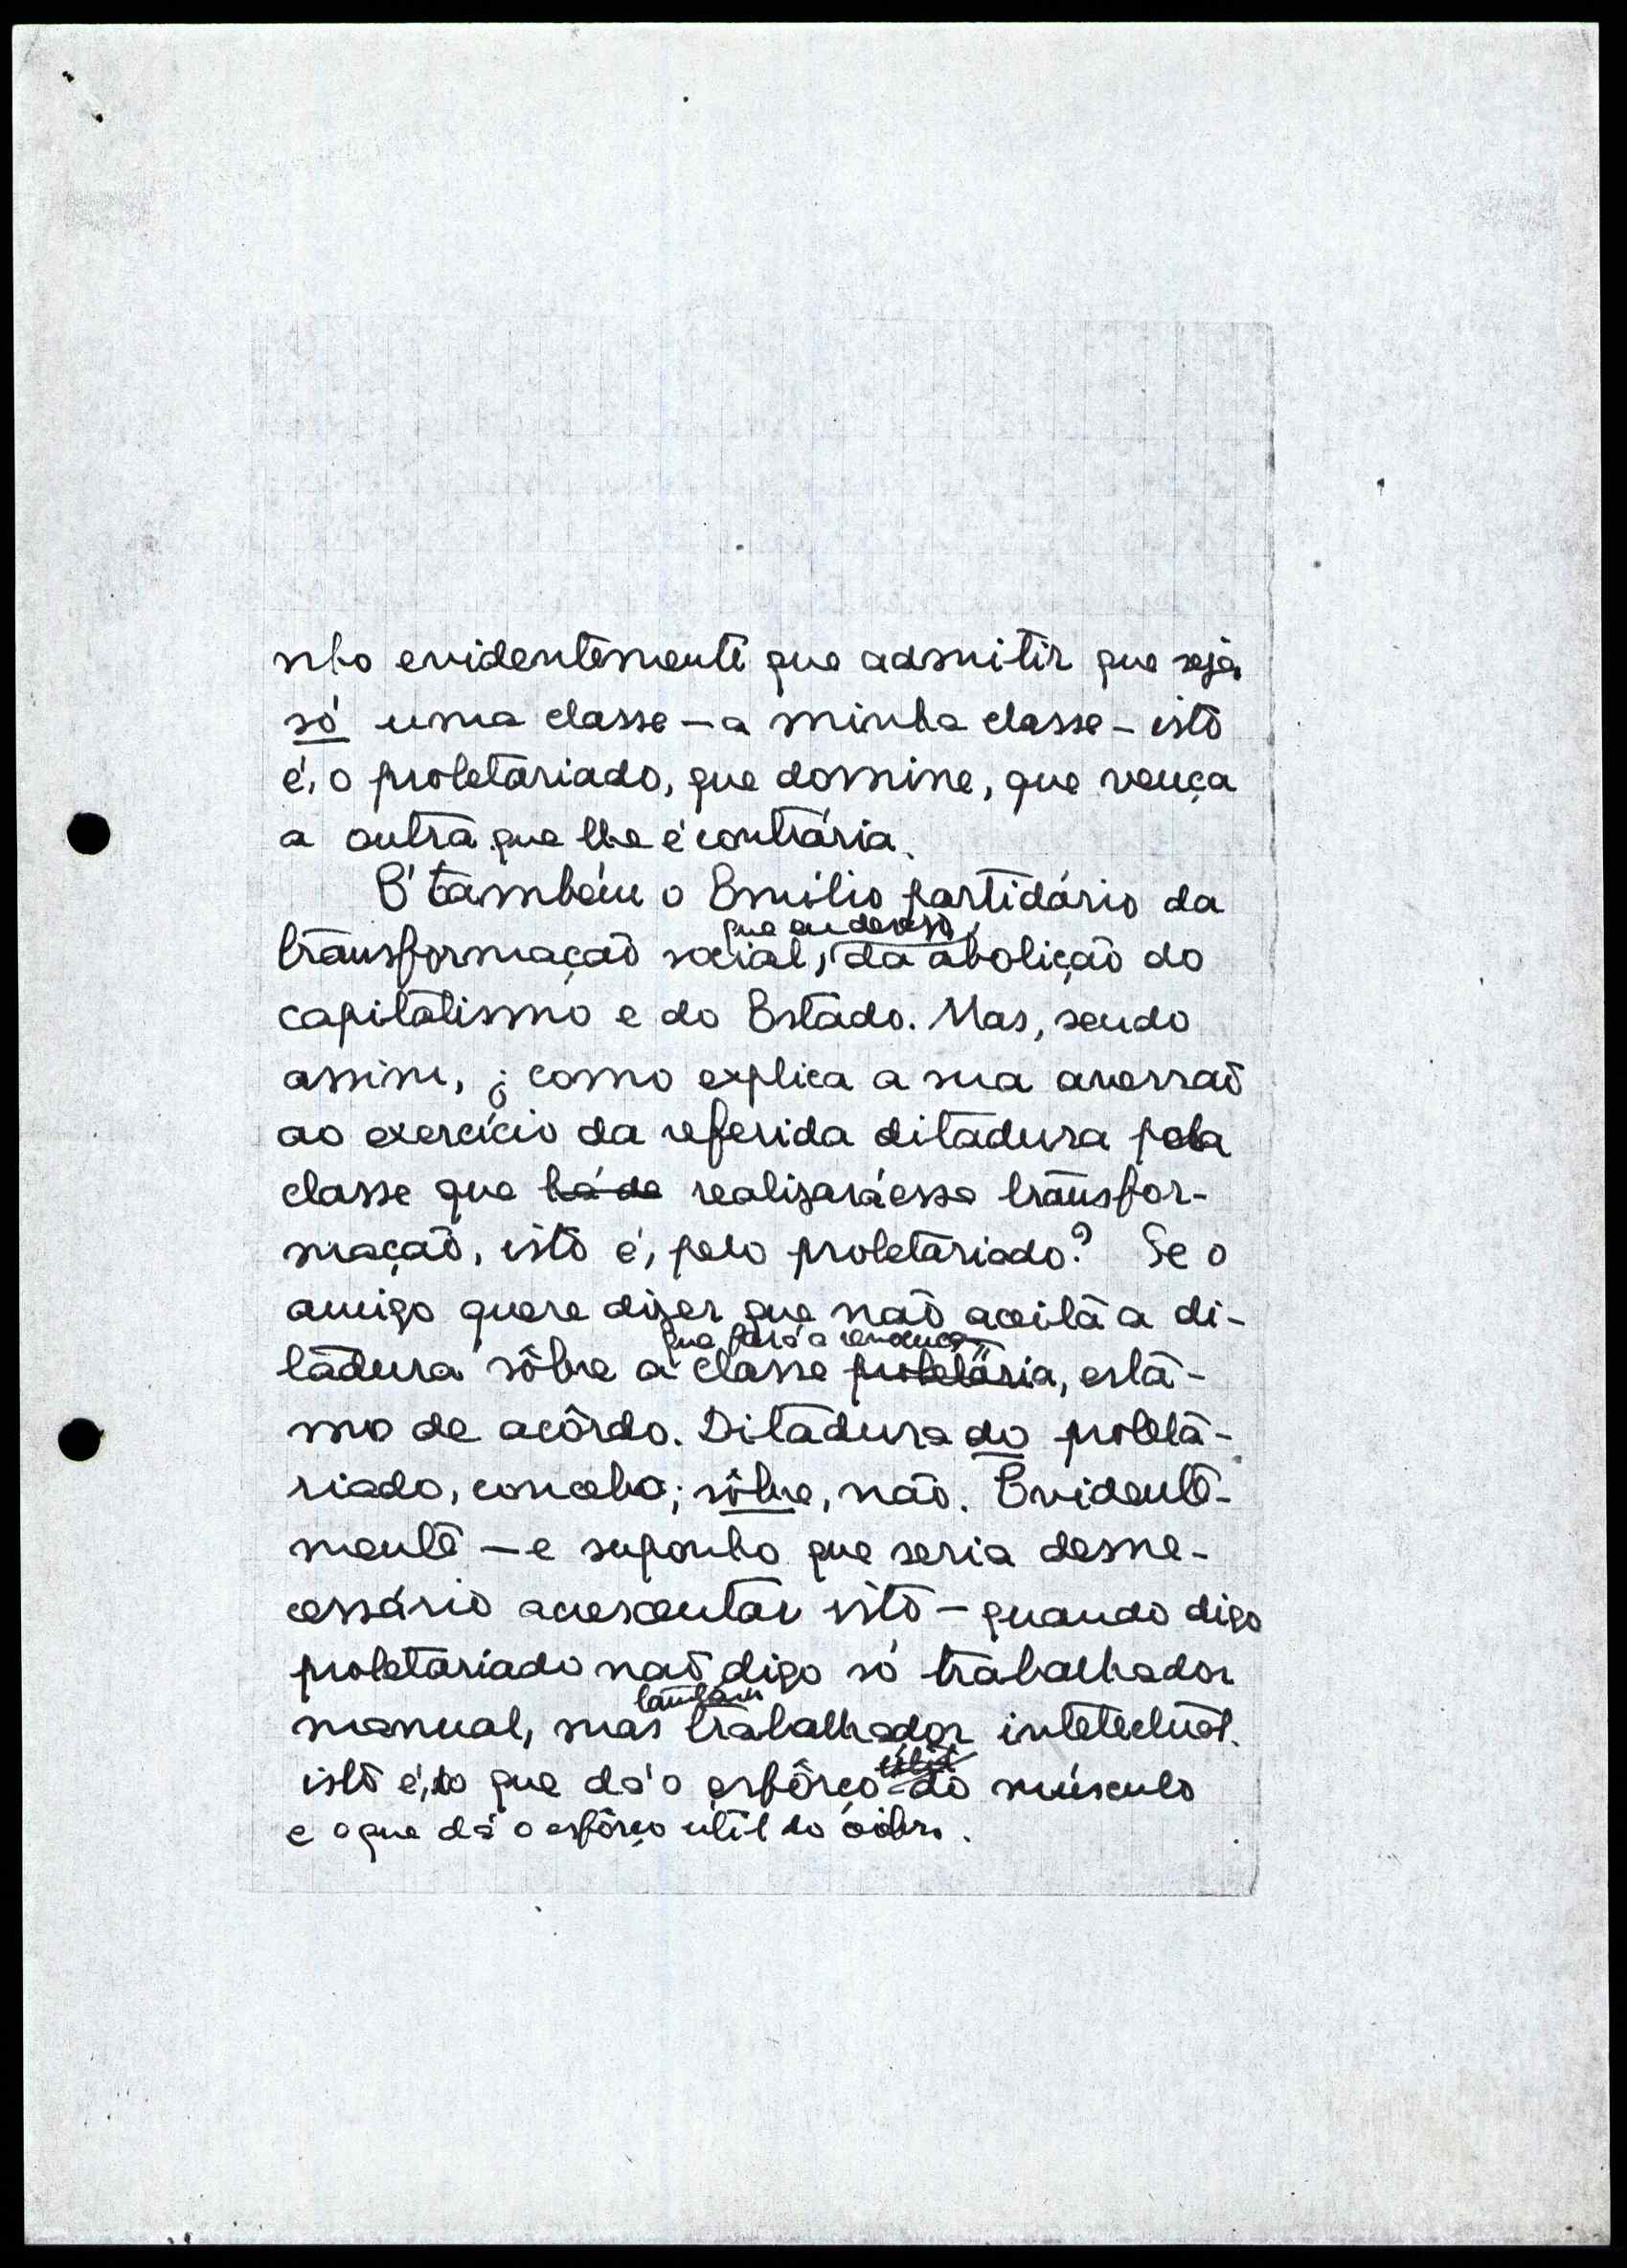 nho evidentemente que admitir que seja
só uma classe – a minha classe – isto
é, o proletariado, que domine, que vença
a outra que lhe é contrária.
É também o Emílio partidário da
que endereço,
transformação social, da abolição do
capitalismo e do Estado. Mas, sendo
assim, ¿ como explica a sua aversão
ao exercício da referida ditadura pela
classe que há de realizará essa transfor-
mação, isto é, pelo proletariado? Se o
amigo quere dizer que não aceita a di-
que fará a
tadura sôbre a classe proletária, esta-
mo de acôrdo. Ditadura do proleta-
riado, concebo; sôbre, não. Evidente-
mente – e suponho que seria desne-
cessário acrescentar isto – quando digo
proletariado não digo só trabalhador
também
manual, mas trabalhador intelectual.
útil
isto é, o que dá o esfôrço do músculo
e o que dá o esfôrço útil do